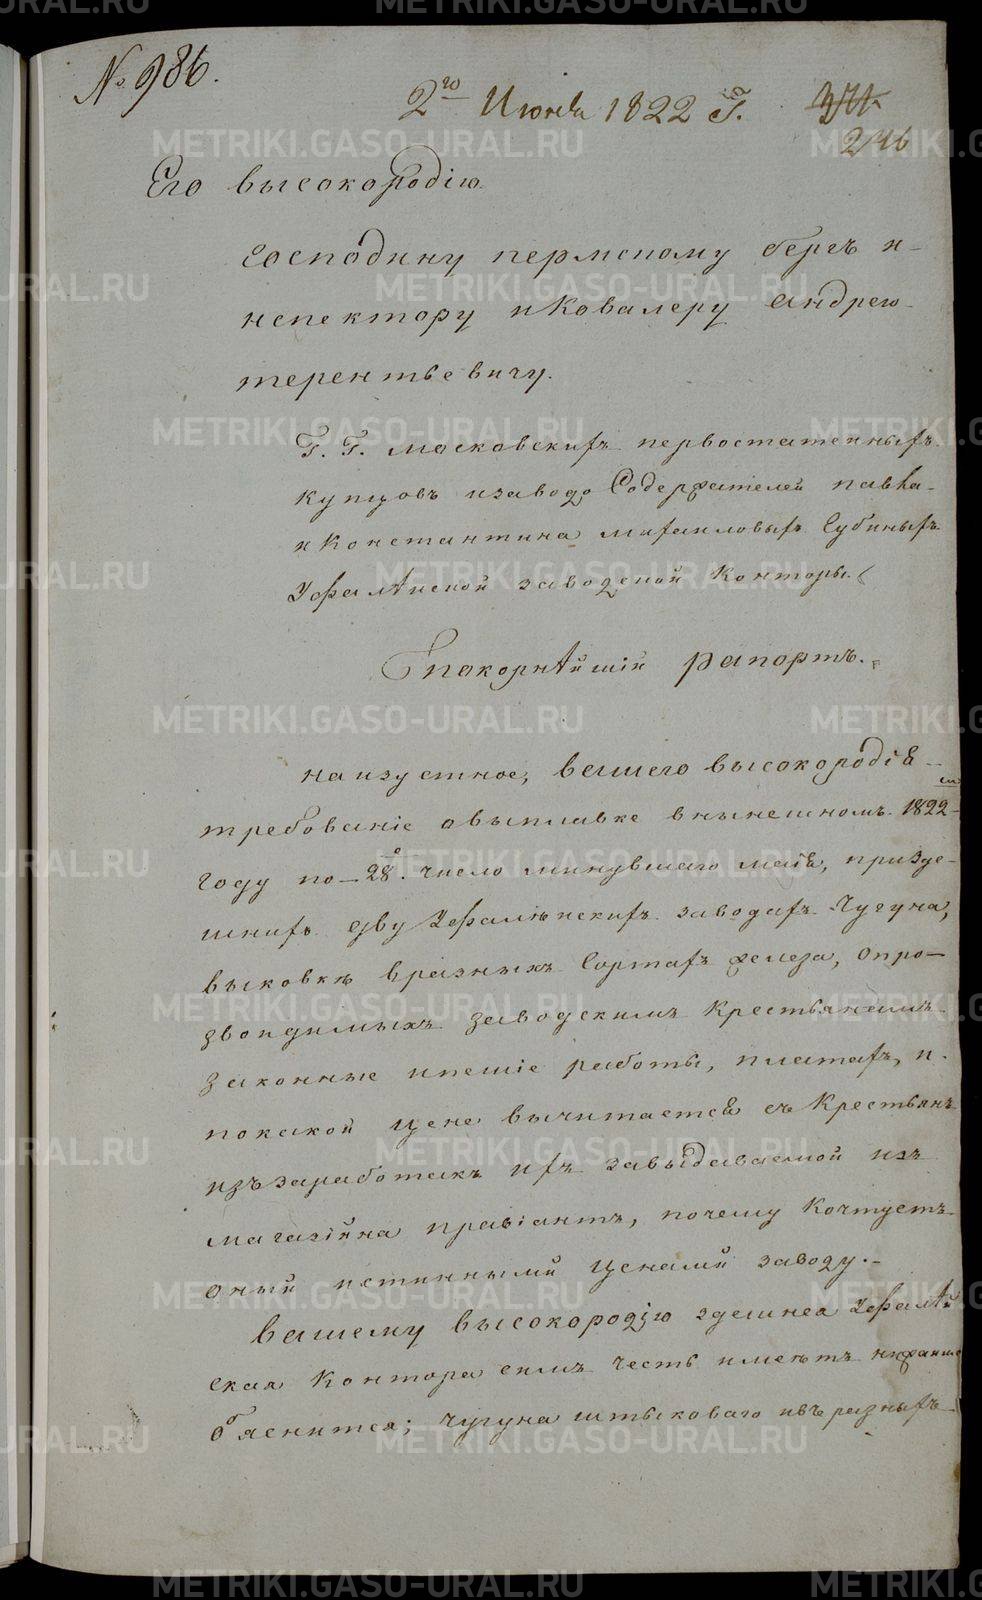 № 986.
2го Июня 1822 Го.
371.
246
Его высокородію
господину пермскому бергъ и-
нспектору и Ковалеру андрею
терентьевичу.
Г. Г. московскихъ первостатейныхъ
купцовъ изаводо Содержателей павла
и Константина михаиловыхъ Губиныхъ
Уфалѣйской заводской Конторы.
Покорнѣйшій рапортъ.
на изустное, вашего высокородія
требованіе овыплавке внынешномъ 1822 м
году по 28е число минувшаго маія, приздѣ-
шнихъ дву Уфалѣйскихъ заводахъ Чугуна,
выковкѣ вразныхъ Сортахъ железа, опро-
зводимыхъ заводскимъ Крестьянамъ
законные ипешіе работы, платахъ, и
покакой цене вычитается съ Крестьянъ
иззаработакъ ихъ завыдаваемой изъ
магазійна правіантъ, почему Коштуетъ
оный истинными ценами заводу.-
Вашему высокородію здешнея Уфалѣй
ская Контора симъ честь имѣетъ ниже
обяснится; чугуна штыковаго ивъ разныхъ